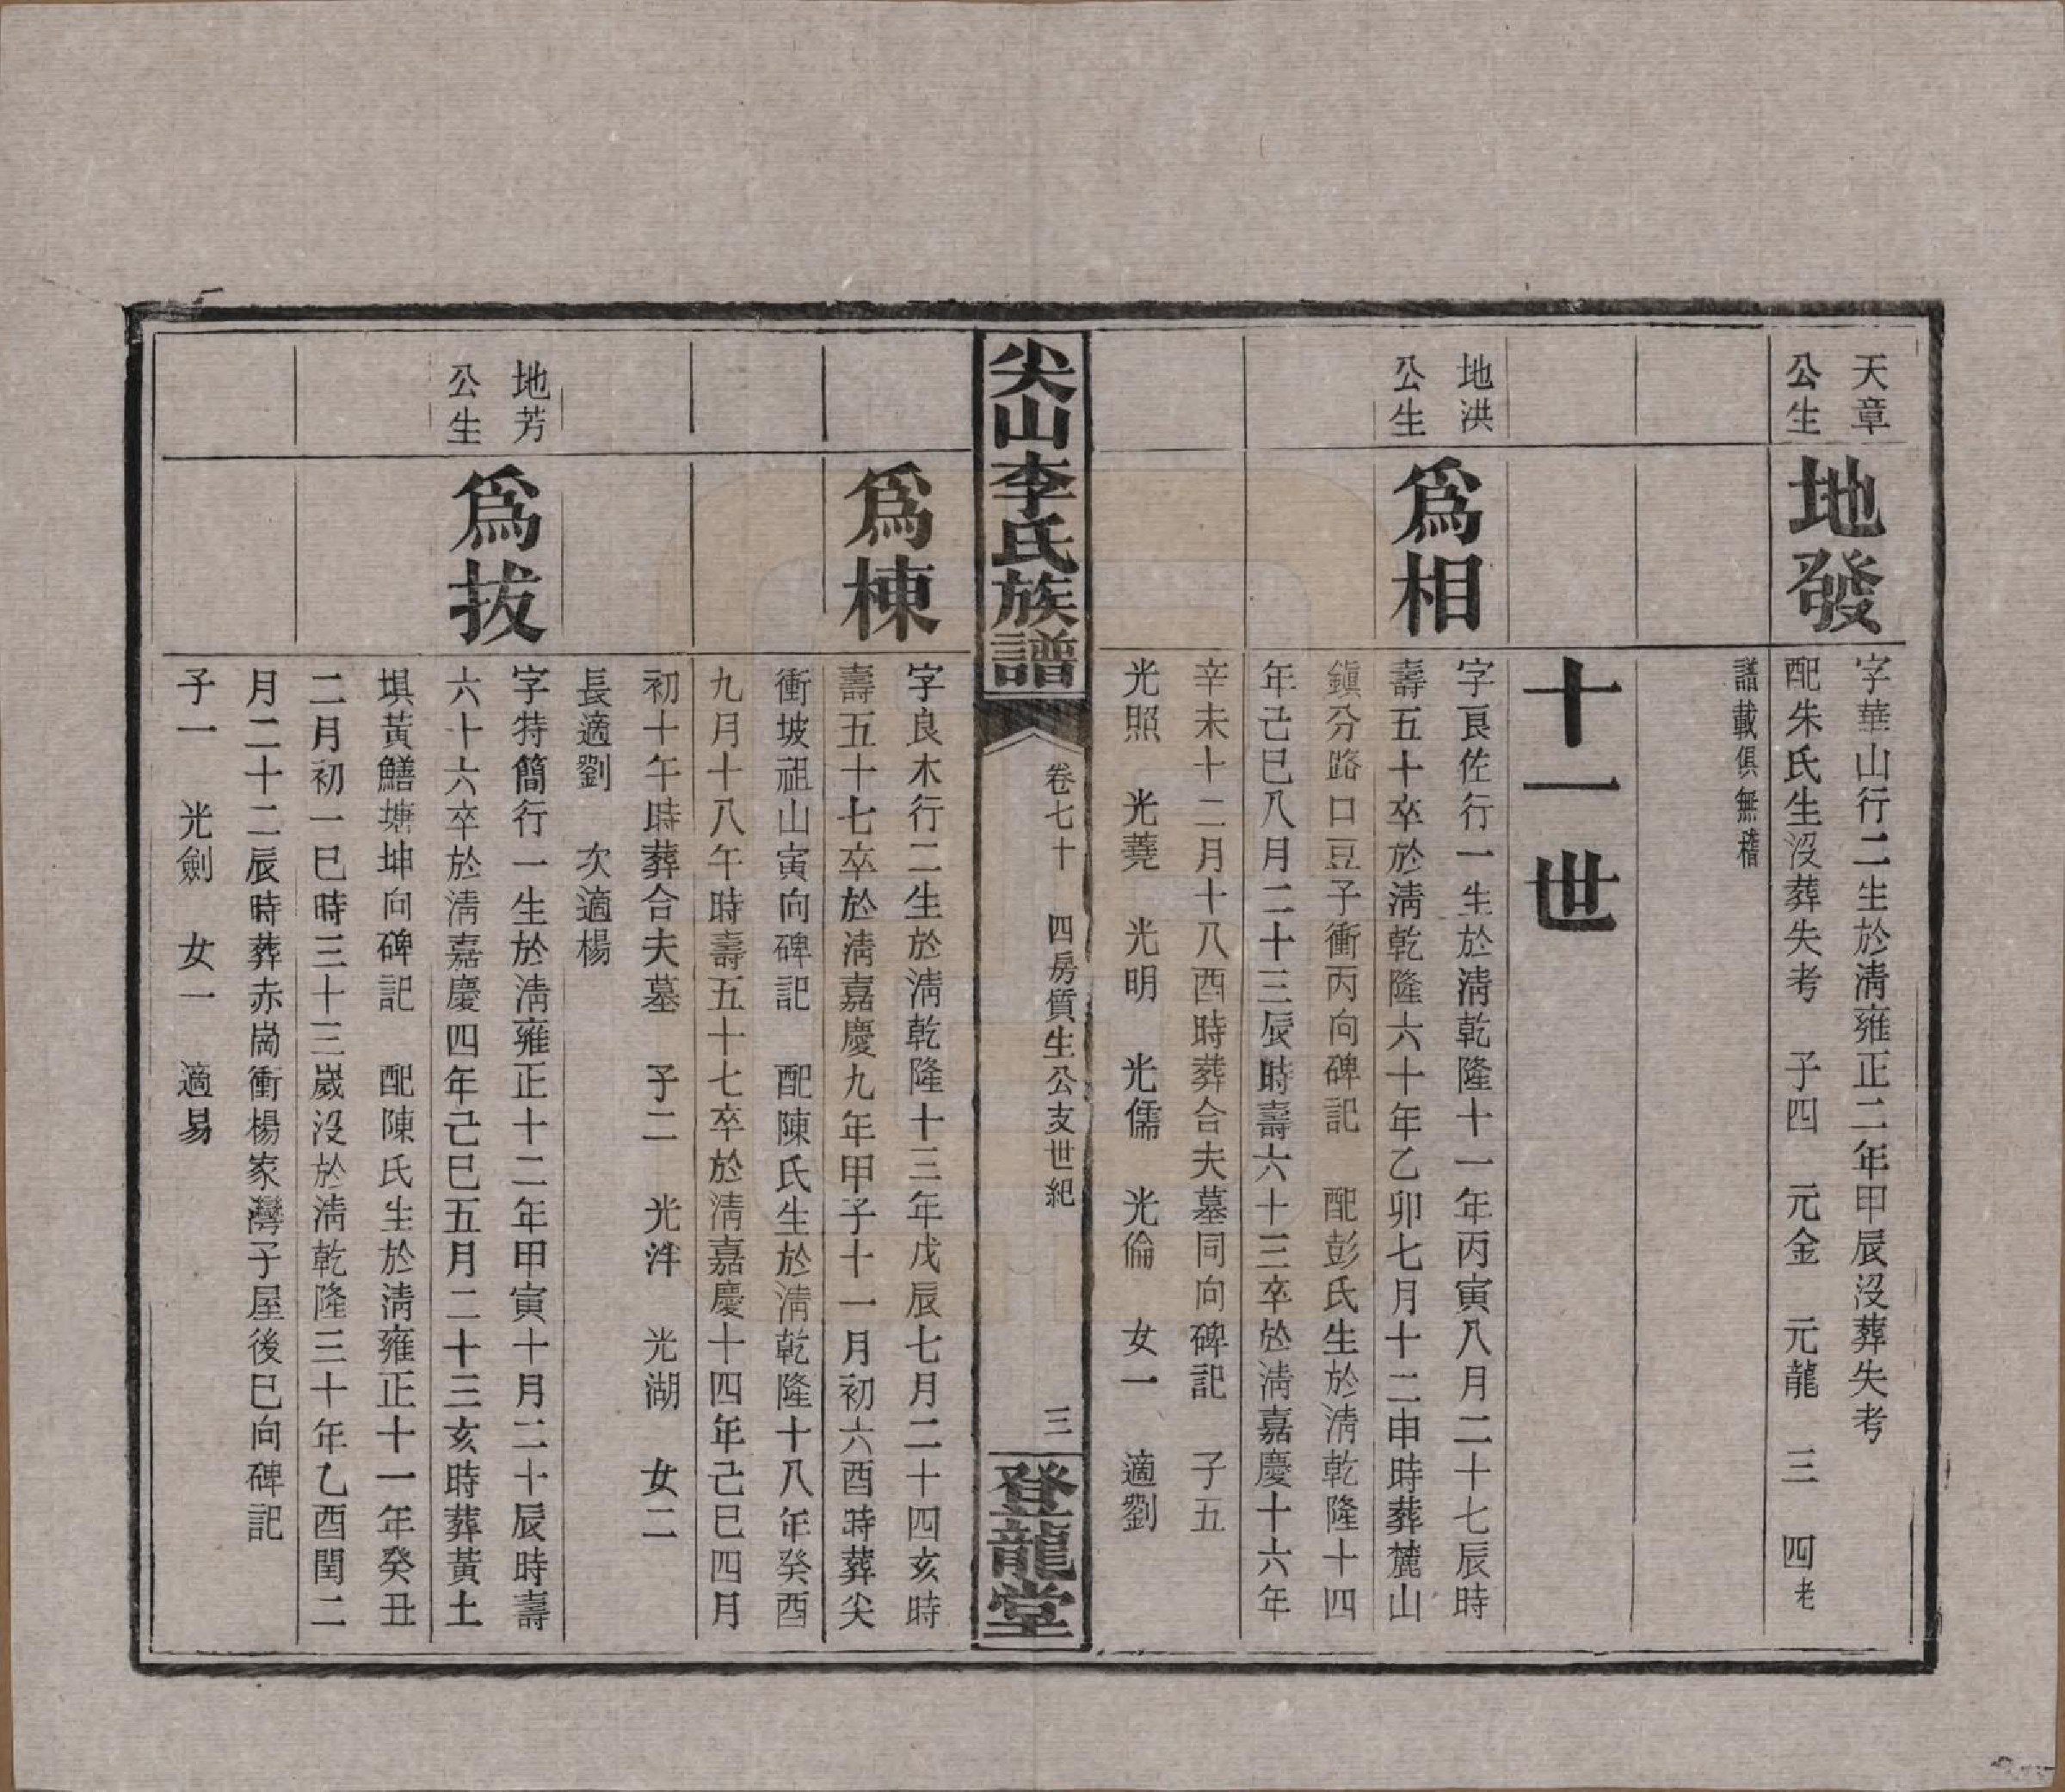 天章
公生
地發
字華山行二生於淸雍正二年甲辰沒葬失考
配朱氏生沒葬失考　子四　元金　元龍　三　四老
譜載俱無稽
十一世
地洪
公生
爲相
字良佐行一生於淸乾隆十一年丙寅八月二十七辰時
壽五十卒於淸乾隆六十年乙卯七月十二申時葬麓山
鎭分路口豆子衝丙向碑記　配彭氏生於淸乾隆十四
年己巳八月二十三辰時壽六十三卒於淸嘉慶十六年
辛未十二月十八酉時葬合夫墓同向碑記　子五
光照　光蕘　光明　光儒　光倫　女一　適劉
尖山李氏族譜
卷七十　四房質生公支世紀
三
登龍堂
爲棟
字良木行二生於淸乾隆十三年戊辰七月二十四亥時
壽五十七卒於淸嘉慶九年甲子十一月初六酉時葬尖
衝坡祖山寅向碑記　配陳氏生於淸乾隆十八年癸酉
九月十八午時壽五十七卒於淸嘉慶十四年己巳四月
初十午時葬合夫墓　子二　光泮　光湖　女二
長適劉　次適楊
地芳
公生
爲拔
字特簡行一生於淸雍正十二年甲寅十月二十辰時壽
六十六卒於淸嘉慶四年己巳五月二十三亥時葬黃土
塤黃鱔塘坤向碑記　配陳氏生於淸雍正十一年癸丑
二月初一巳時三十三歲沒於淸乾隆三十年乙酉閏二
月二十二辰時葬赤崗衝楊家灣子屋後巳向碑記
子一　光劍　女一　適易